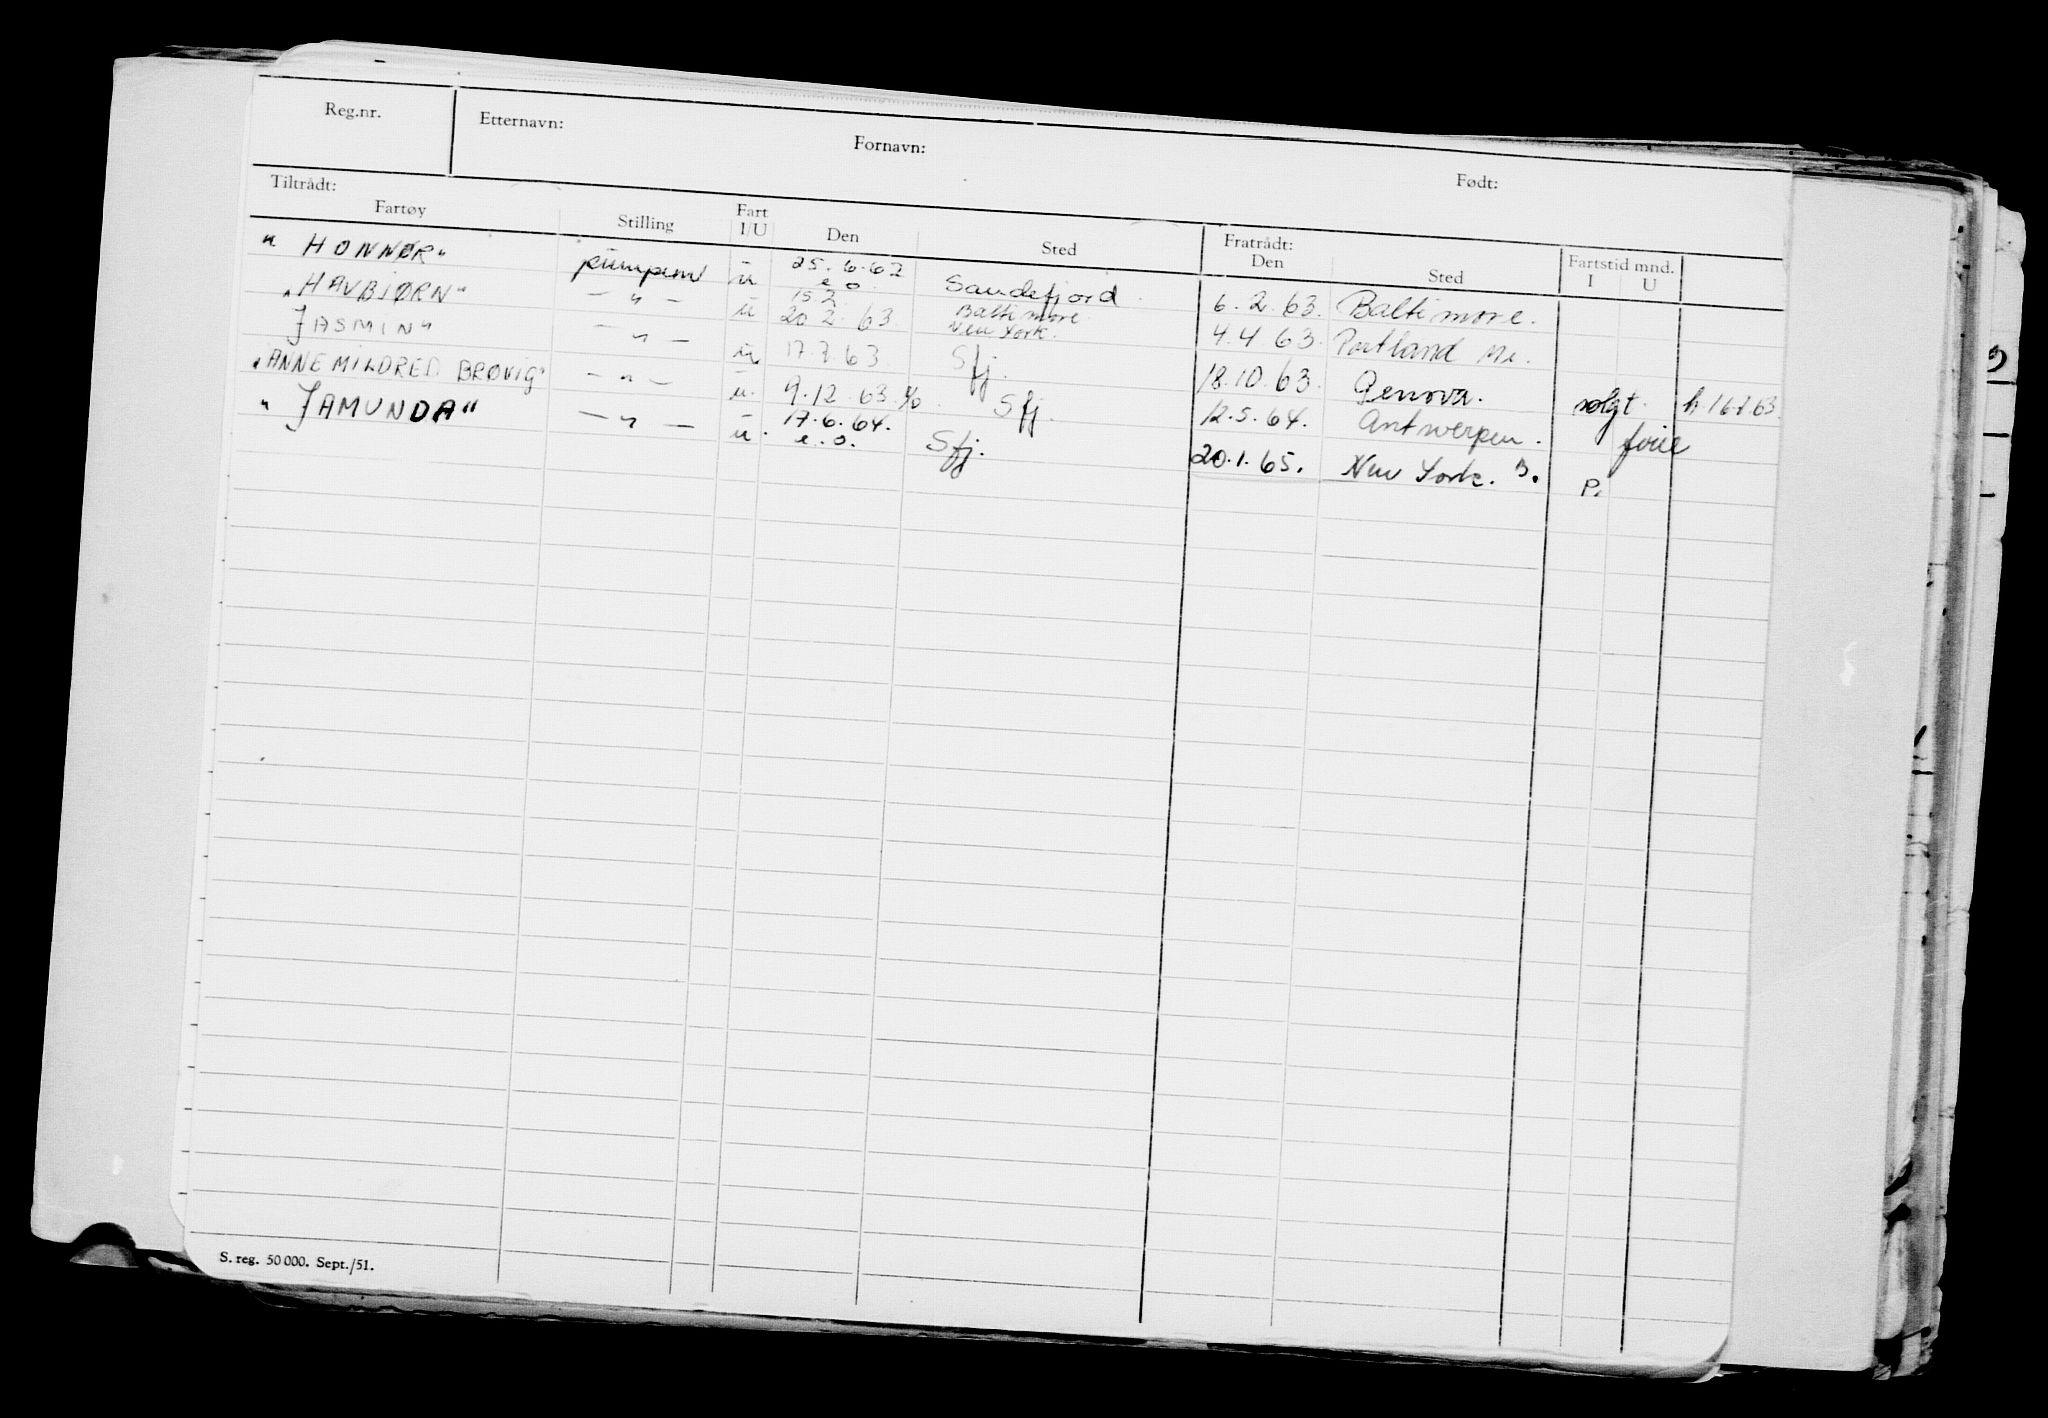 Reg.nr. Etternavn: Fornavn: Født:
Tiltrådt: Fratrådt: Fartstid mnd.
Fartøy Stilling Fart I/U Den Sted Den Sted I U
"HONNØR" pumpem u 25.6.62 e.o. Sandefjord. 6.2.63. Baltimore.
"HAVBJØRN" —"— u 15.2 20.2.63. Baltimore New York. 4.4.63. Portland Me.
JASMIN" —"— u 17.7.63. Sfj. 18.10.63. Genova. solgt.
"ANNE MILDRED BRØVIG" —"— u. 9.12.63. Sfj. 12.5.64. Antwerpen.
"JAMUNDA" —"— u. 17.6.64. e.o. Sfj. 20.1.65. New York. P.
S. reg. 50 000. Sept./51.